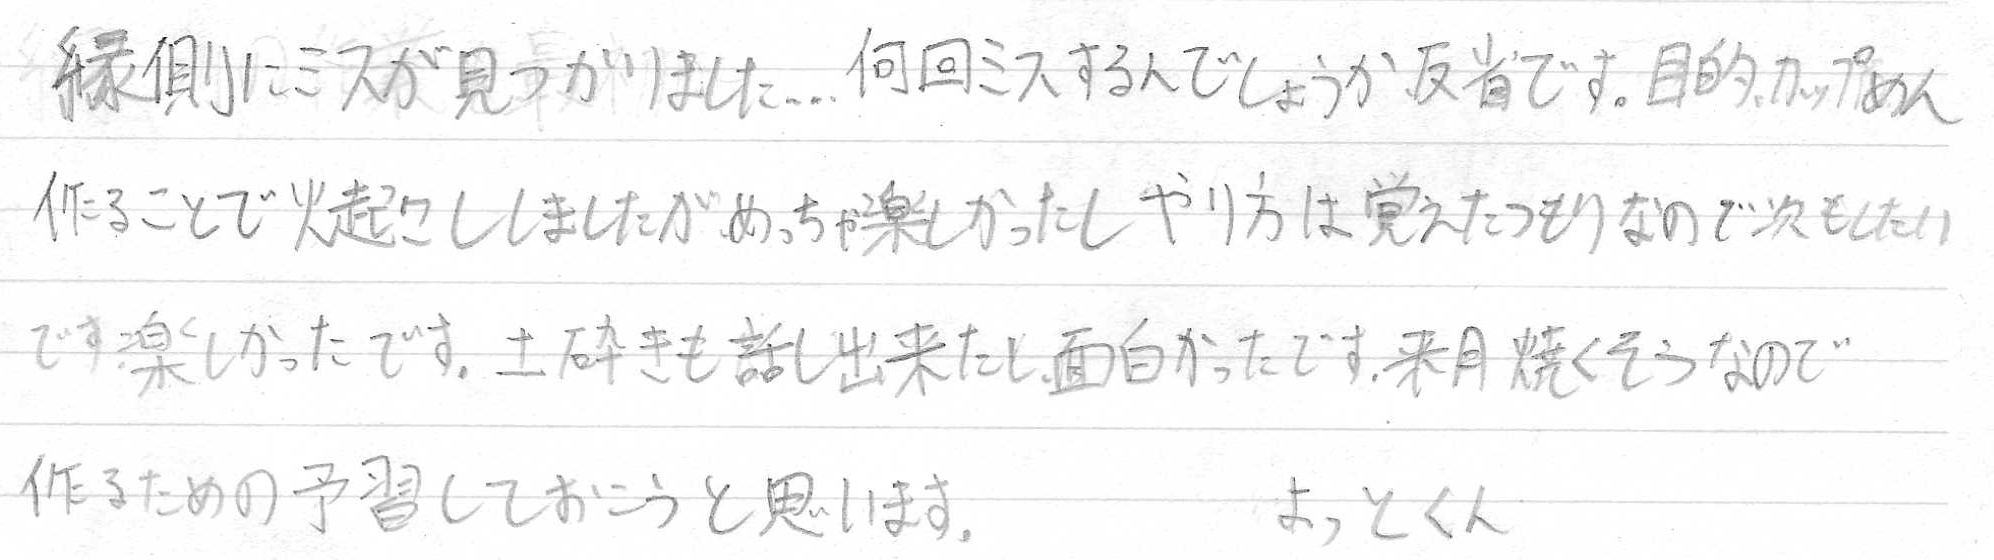 縁側にミスが見つかりました…. 何回ミスするんでしょうか、反省です。目的、カップめん
作ることで火起こししましたが、めっちゃ楽しかったし やり方は覚えたつもりなので次もしたい
です。楽しかったです。土砕きも話し出来たし、面白かったです。来月焼くそうなので
作るための予習しておこうと思います。 よっとくん